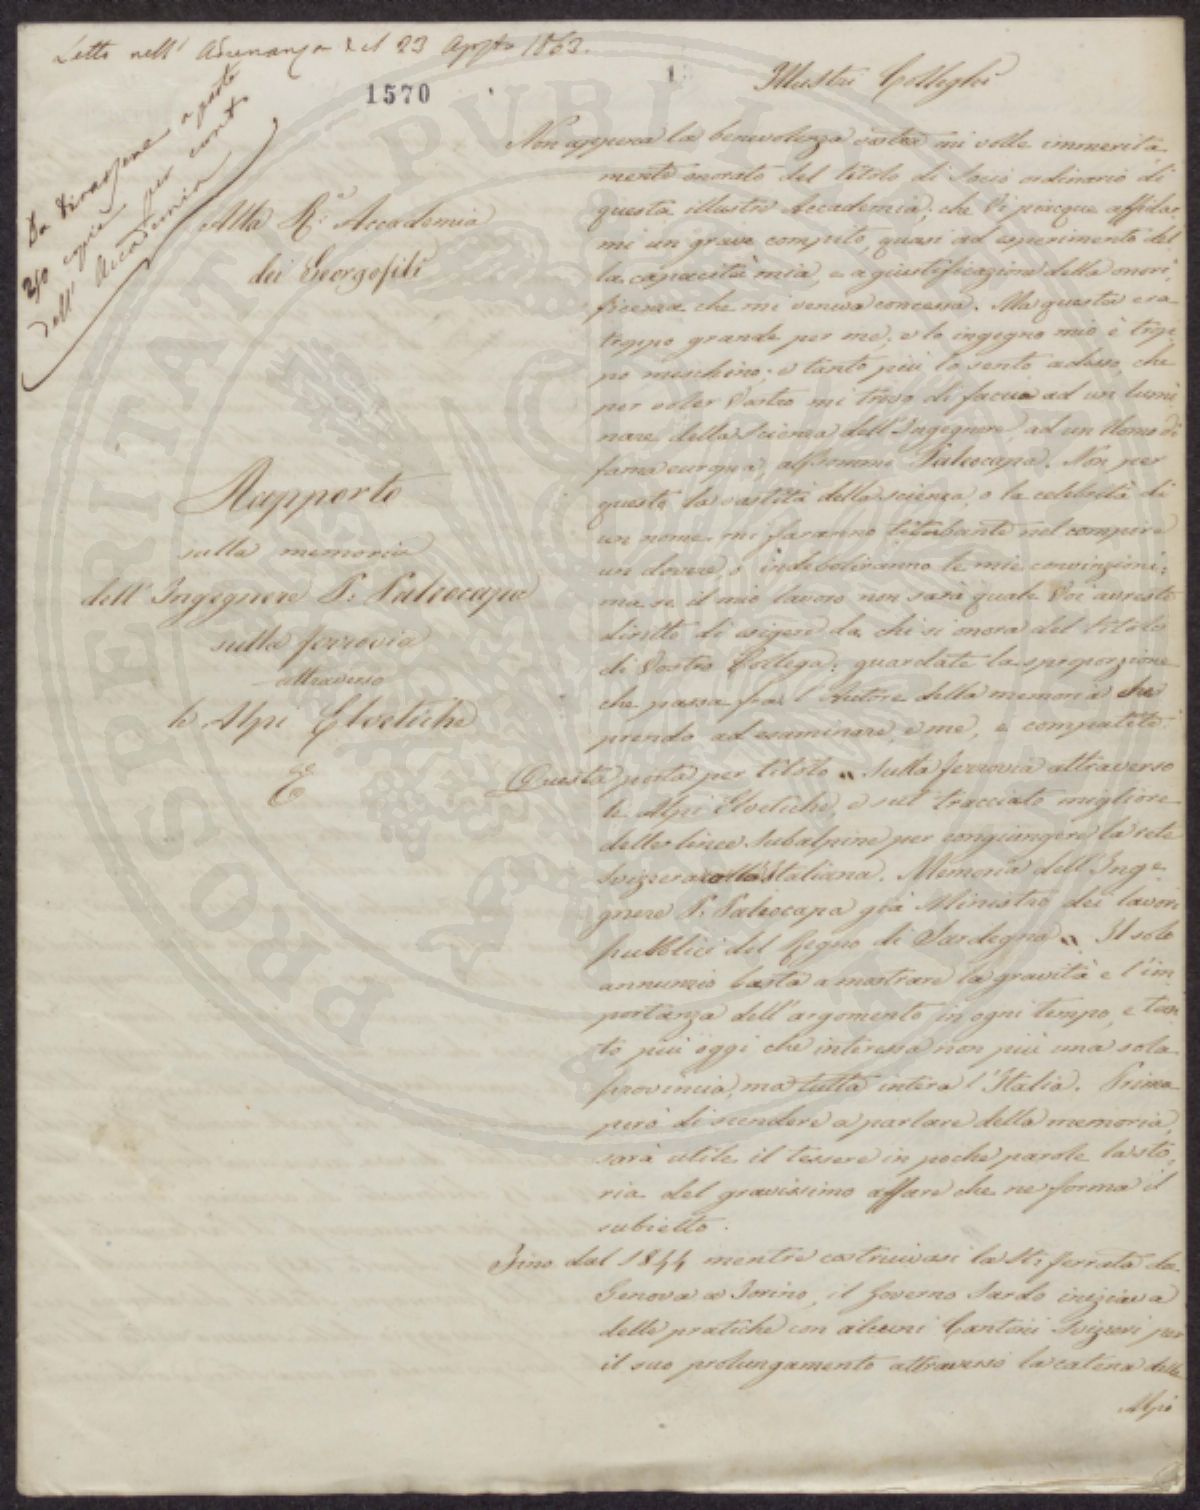 Letto nell' Adunanza del 23 Agosto 1863.
1570
1
Da tirarsene a parte
250 copie per conto
dell' Accademia
Alla R.ª Accademia
dei Georgofili
Rapporto
sulla memoria
dell' Ingegnere P: Paleocapa
sulla ferrovia
attraverso
le Alpi Elvetiche
E
Illustri Colleghi
Non appena la benevolenza vostra mi volle immerita
mente onorato del titolo di Socio ordinario di
questa illustre Accademia; che Vi piacque affidar
mi un grave compito, quasi ad esperimento del
la capacità mia, e a giustificazione della onori,
ficenza che mi veniva concessa. Ma questa era
troppo grande per me, e lo ingegno mio è trop
po meschino; e tanto più lo sento adesso, che
per voler Vostro mi trovo di faccia ad un lumi
nare della Scienza dell'Ingegnere, ad un Uomo di
fama europea, al sommo Paleocapa. Non per
questo la vastità della scienza, o la celebrità di
un nome mi faranno titubante nel compire
un dovere, o indeboliranno le mie convinzioni:
ma se il mio lavoro non sarà quale Voi avreste
diritto di esigere da chi si onora del titolo
di Vostro Collega: guardate la sproporzione
che passa fra l'Autore della memoria che
prendo ad esaminare, e me, e compatite.
Questa porta per titolo „ Sulla ferrovia attraverso
le Alpi Elvetiche, e sul tracciato migliore
delle linee Subalpine per congiungere la rete
Svizzera alla Italiana. Memoria dell'Inge
gnere P. Paleocapa già Ministro dei lavori
pubblici del Regno di Sardegna „. Il solo
annunzio basta a mostrare la gravità e l'im
portanza dell'argomento in ogni tempo, e tan
to più oggi che interessa non più una sola
provincia, ma tutta intera l'Italia. Prima
però di scendere a parlare della memoria,
sarà utile il tessere in poche parole la sto,
ria del gravissimo affare che ne forma il
subietto.
Fino dal 1844 mentre costruivasi la St: ferrata da
Genova a Torino, il Governo Sardo iniziava
delle pratiche con alcuni Cantoni Svizzeri per
il suo prolungamento attraverso la catena delle
Alpi